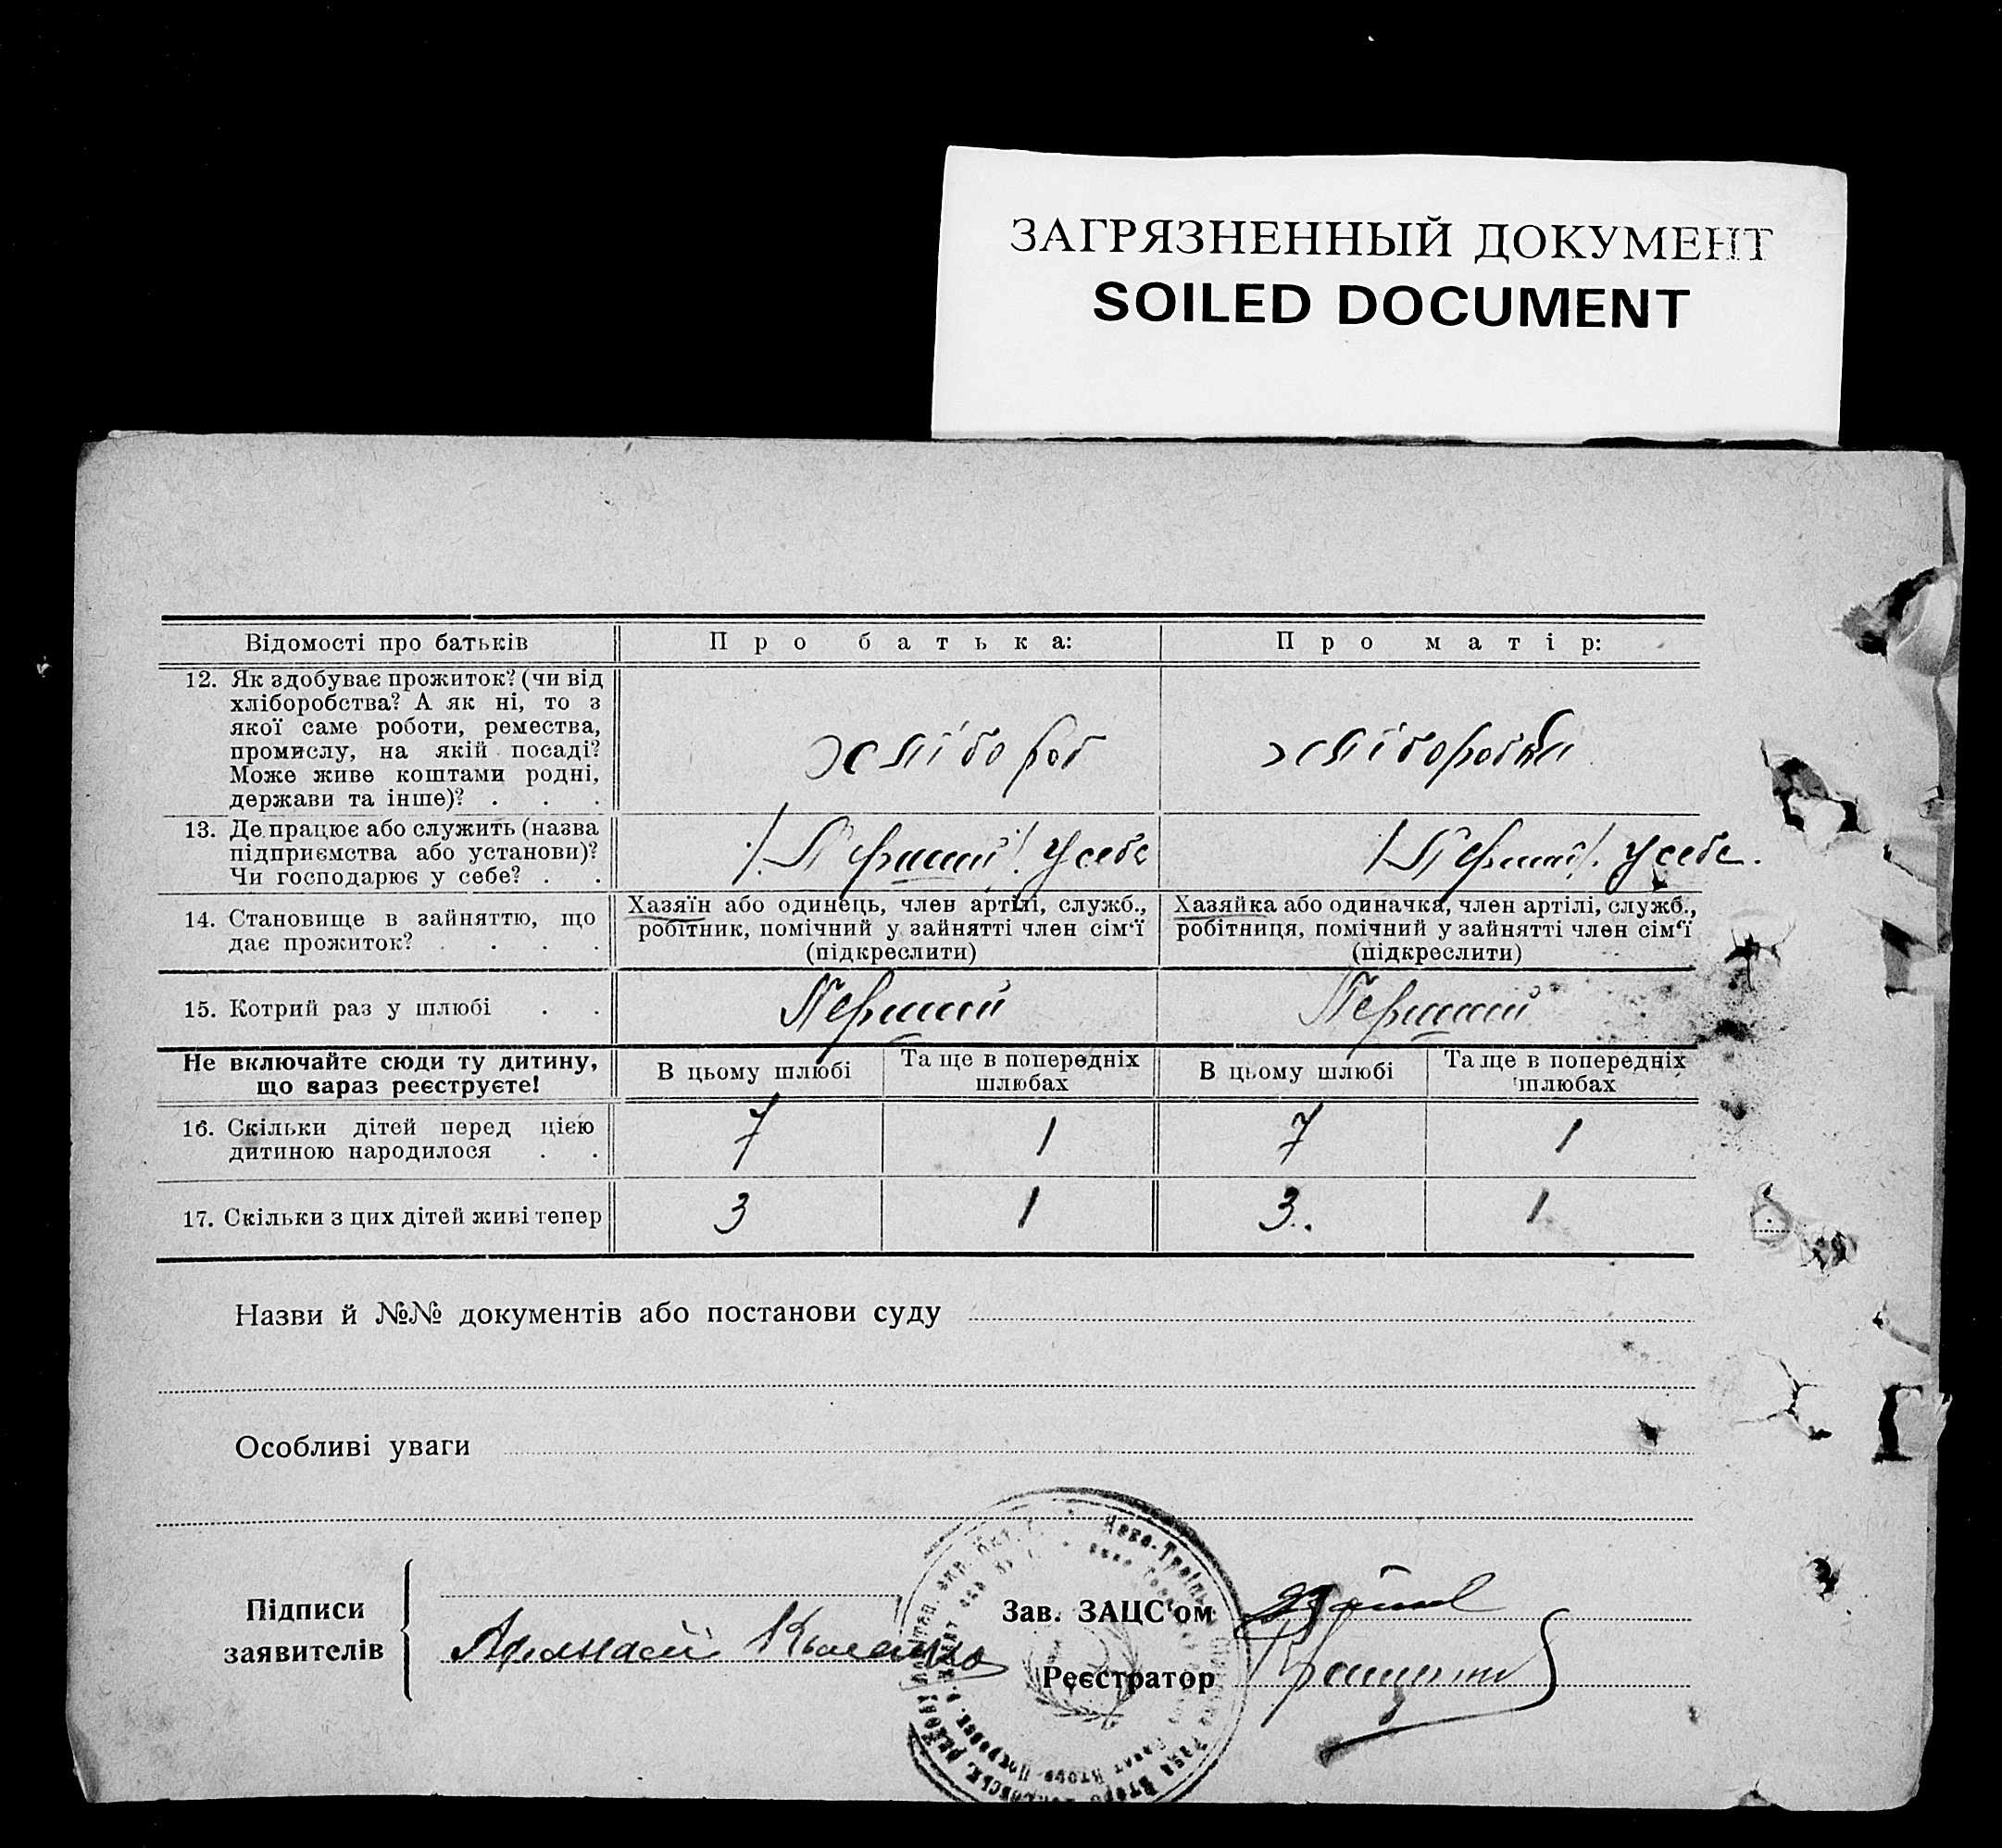 ЗАГРЯЗНЕННЫЙ ДОКУМЕНТ
SOILED DOCUMENT
Відомості про батьків
Про батька:
Про матір:
12. Як здобуває прожиток? (чи від
хліборобства? А як ні, то з
якої саме роботи, ремества,
промислу, на якій посаді?
Може живе коштами родні,
держави та інше)? . . .
хлібороб
хліборобка
13. Де працює або служить (назва
підприємства або установи)?
Чи господарює у себе? . .
/Перший/. У себе
/Перший/. У себе.
14. Становище в зайняттю, що
дає прожиток? . . . .
Хазяїн або одинець, член артілі, служб.,
робітник, помічний у зайнятті член сім'ї
(підкреслити)
Хазяйка або одиначка, член артілі, служб.,
робітниця, помічний у зайнятті член сім'ї
(підкреслити)
15. Котрий раз у шлюбі . .
Перший
Перший
Не включайте сюди ту дитину,
що зараз реєструєте!
В цьому шлюбі
Та ще в попередніх
шлюбах
В цьому шлюбі
Та ще в попередніх
шлюбах
16. Скільки дітей перед цією
дитиною народилося . .
7
1
7
1
17. Скільки з цих дітей живі тепер
3
1
3.
1
Назви й №№ документів або постанови суду
Особливі уваги
Підписи
заявителів
Афанасій
Зав. ЗАЦС'ом
Реєстратор